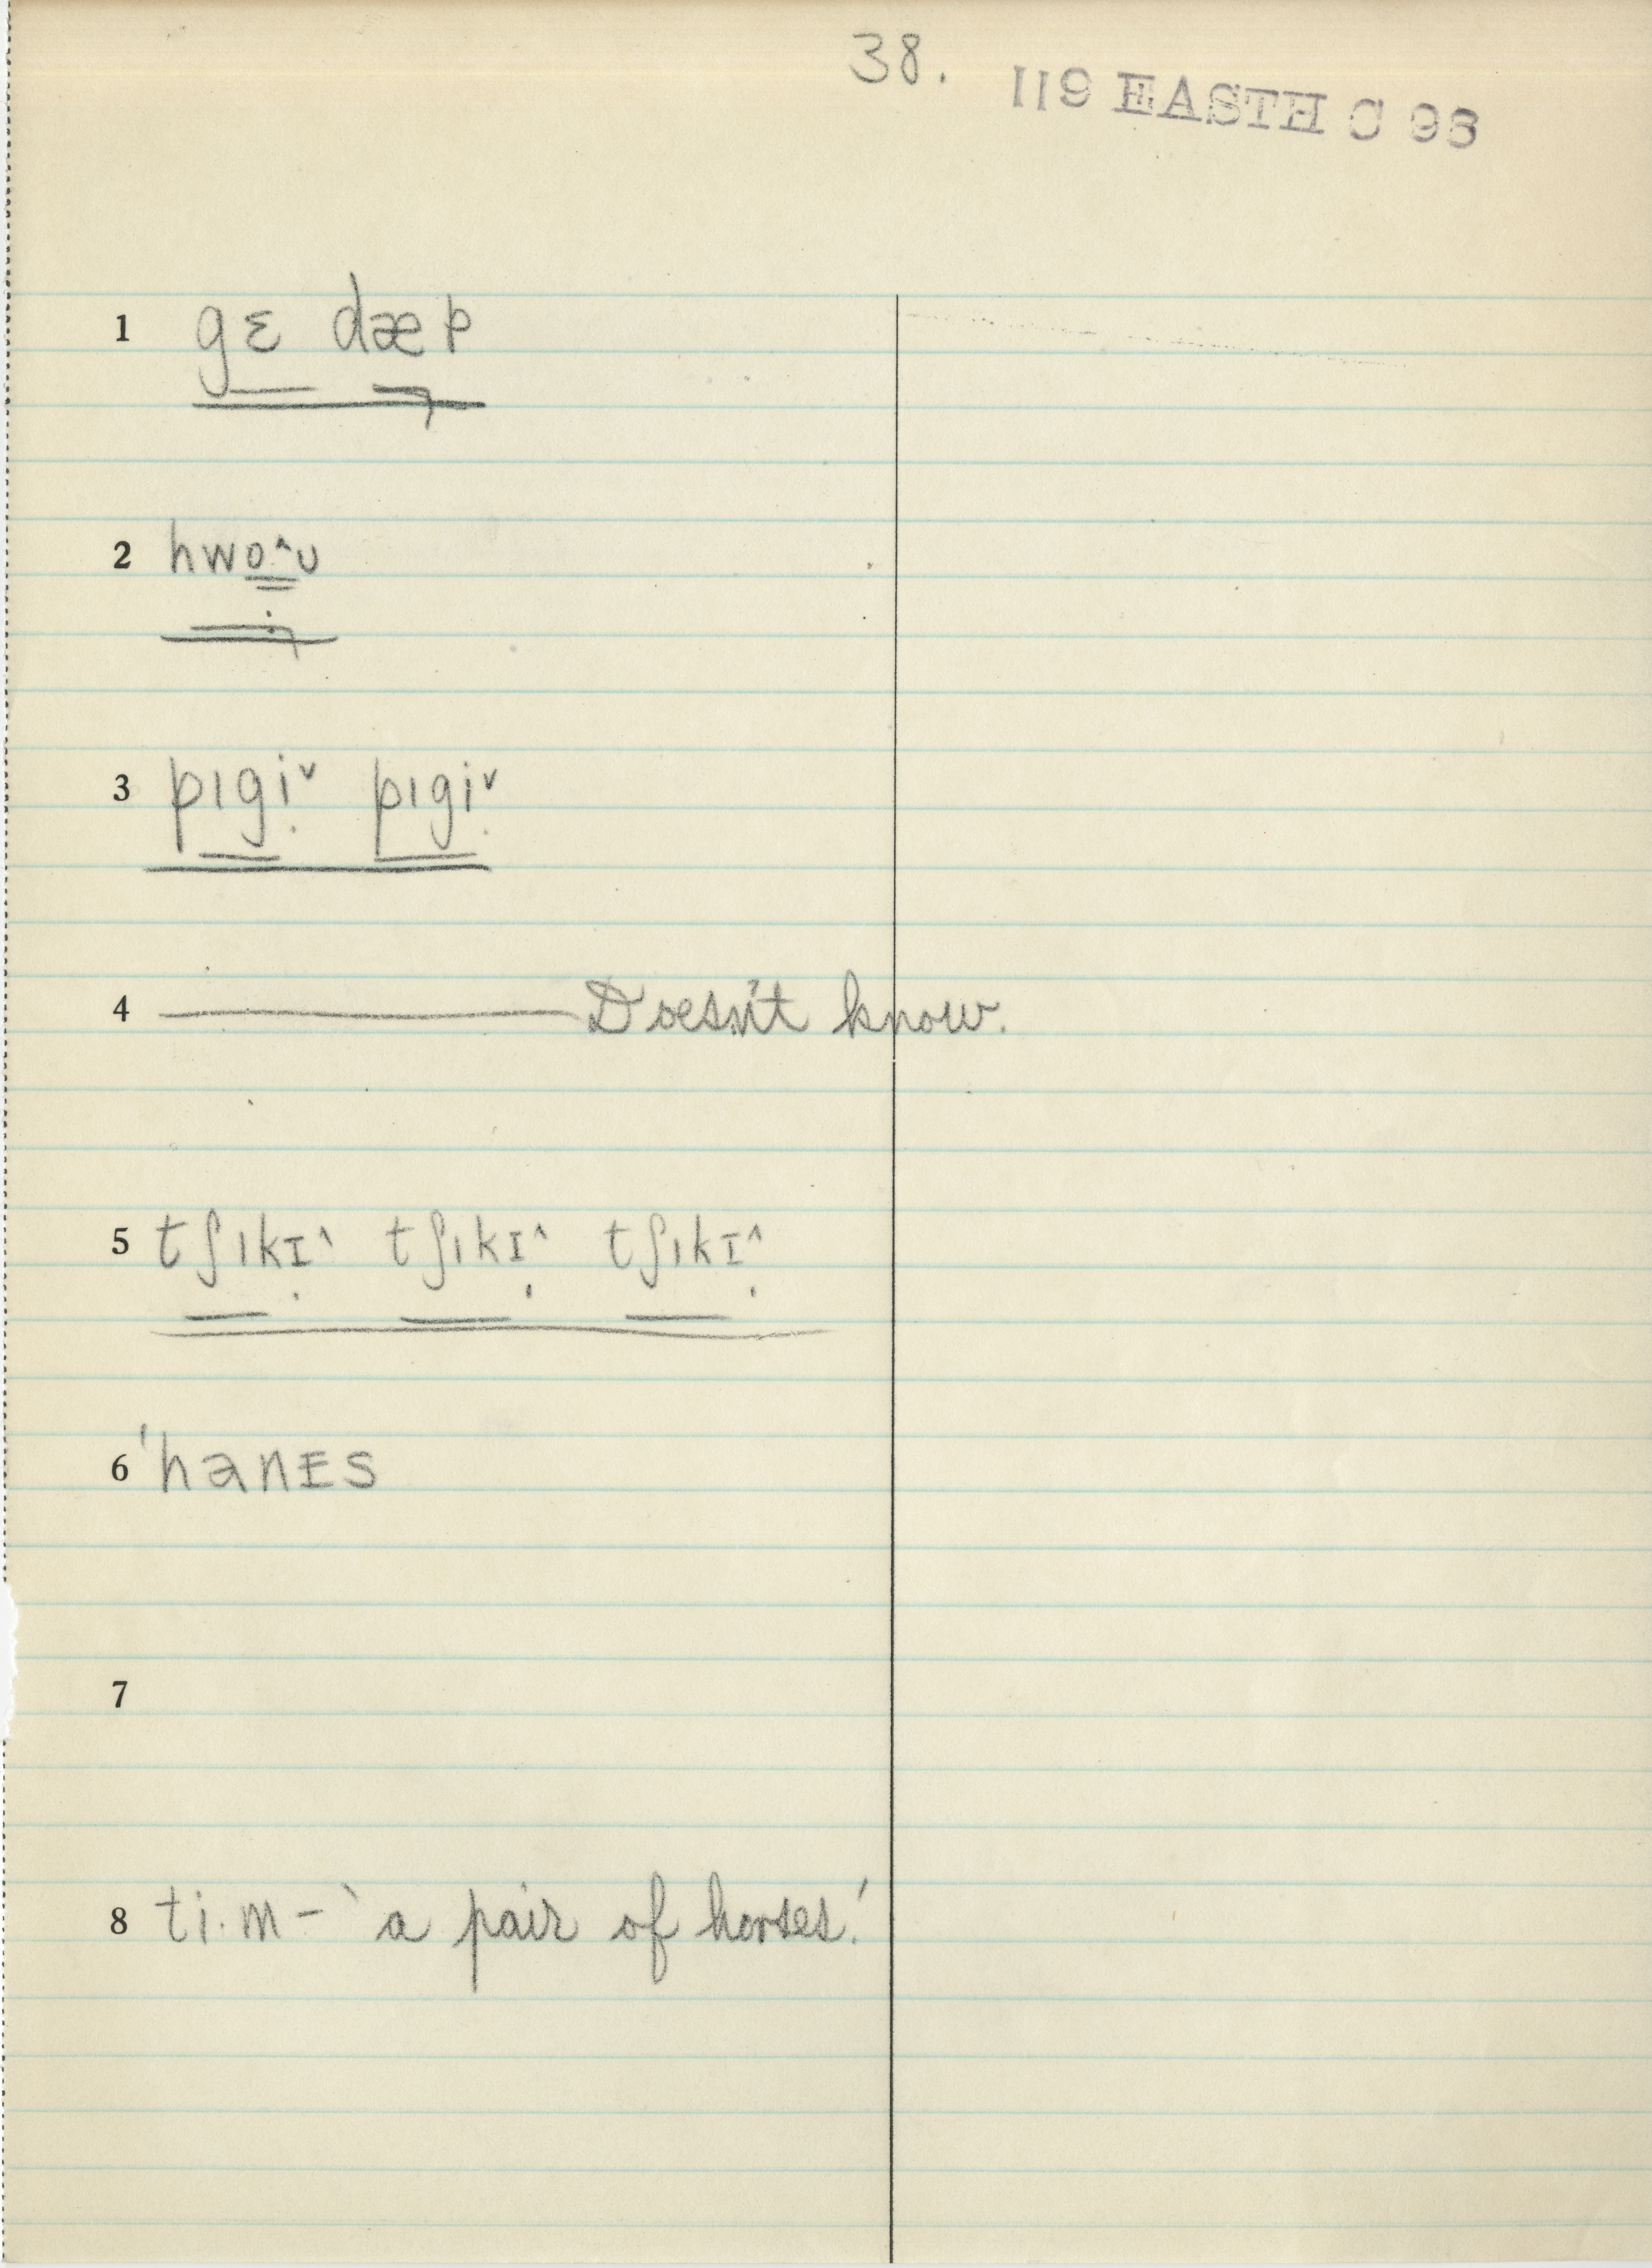 38.
119 EASTH C 98
1 gɛ dæp
2 hwo·^ʊ
3 pɪgi˅ pɪgi˅
4 ——— Doesn't know.
5 tʃɪkɪ^ tʃɪkɪ^ tʃɪkɪ^
6 'hanɪs
7
8 ti·m – 'a pair of horses.'